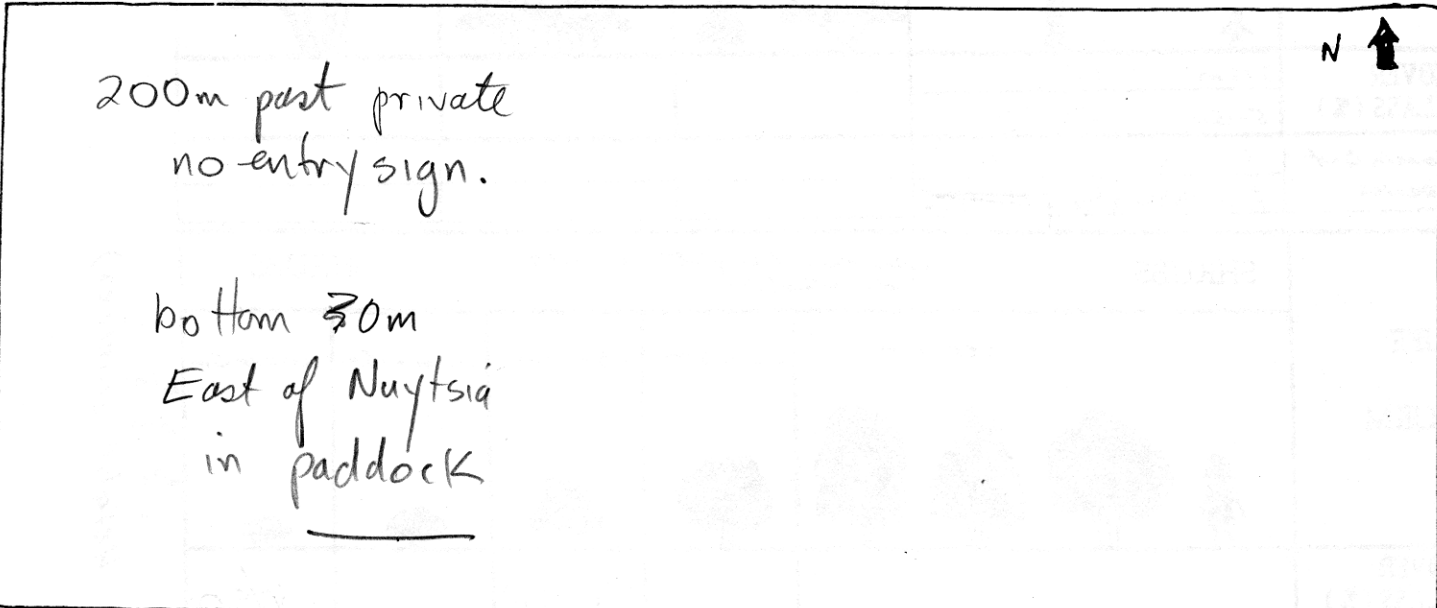 N
200m past private
no entry sign.
bottom 30m
East of Nuytsia
in paddock